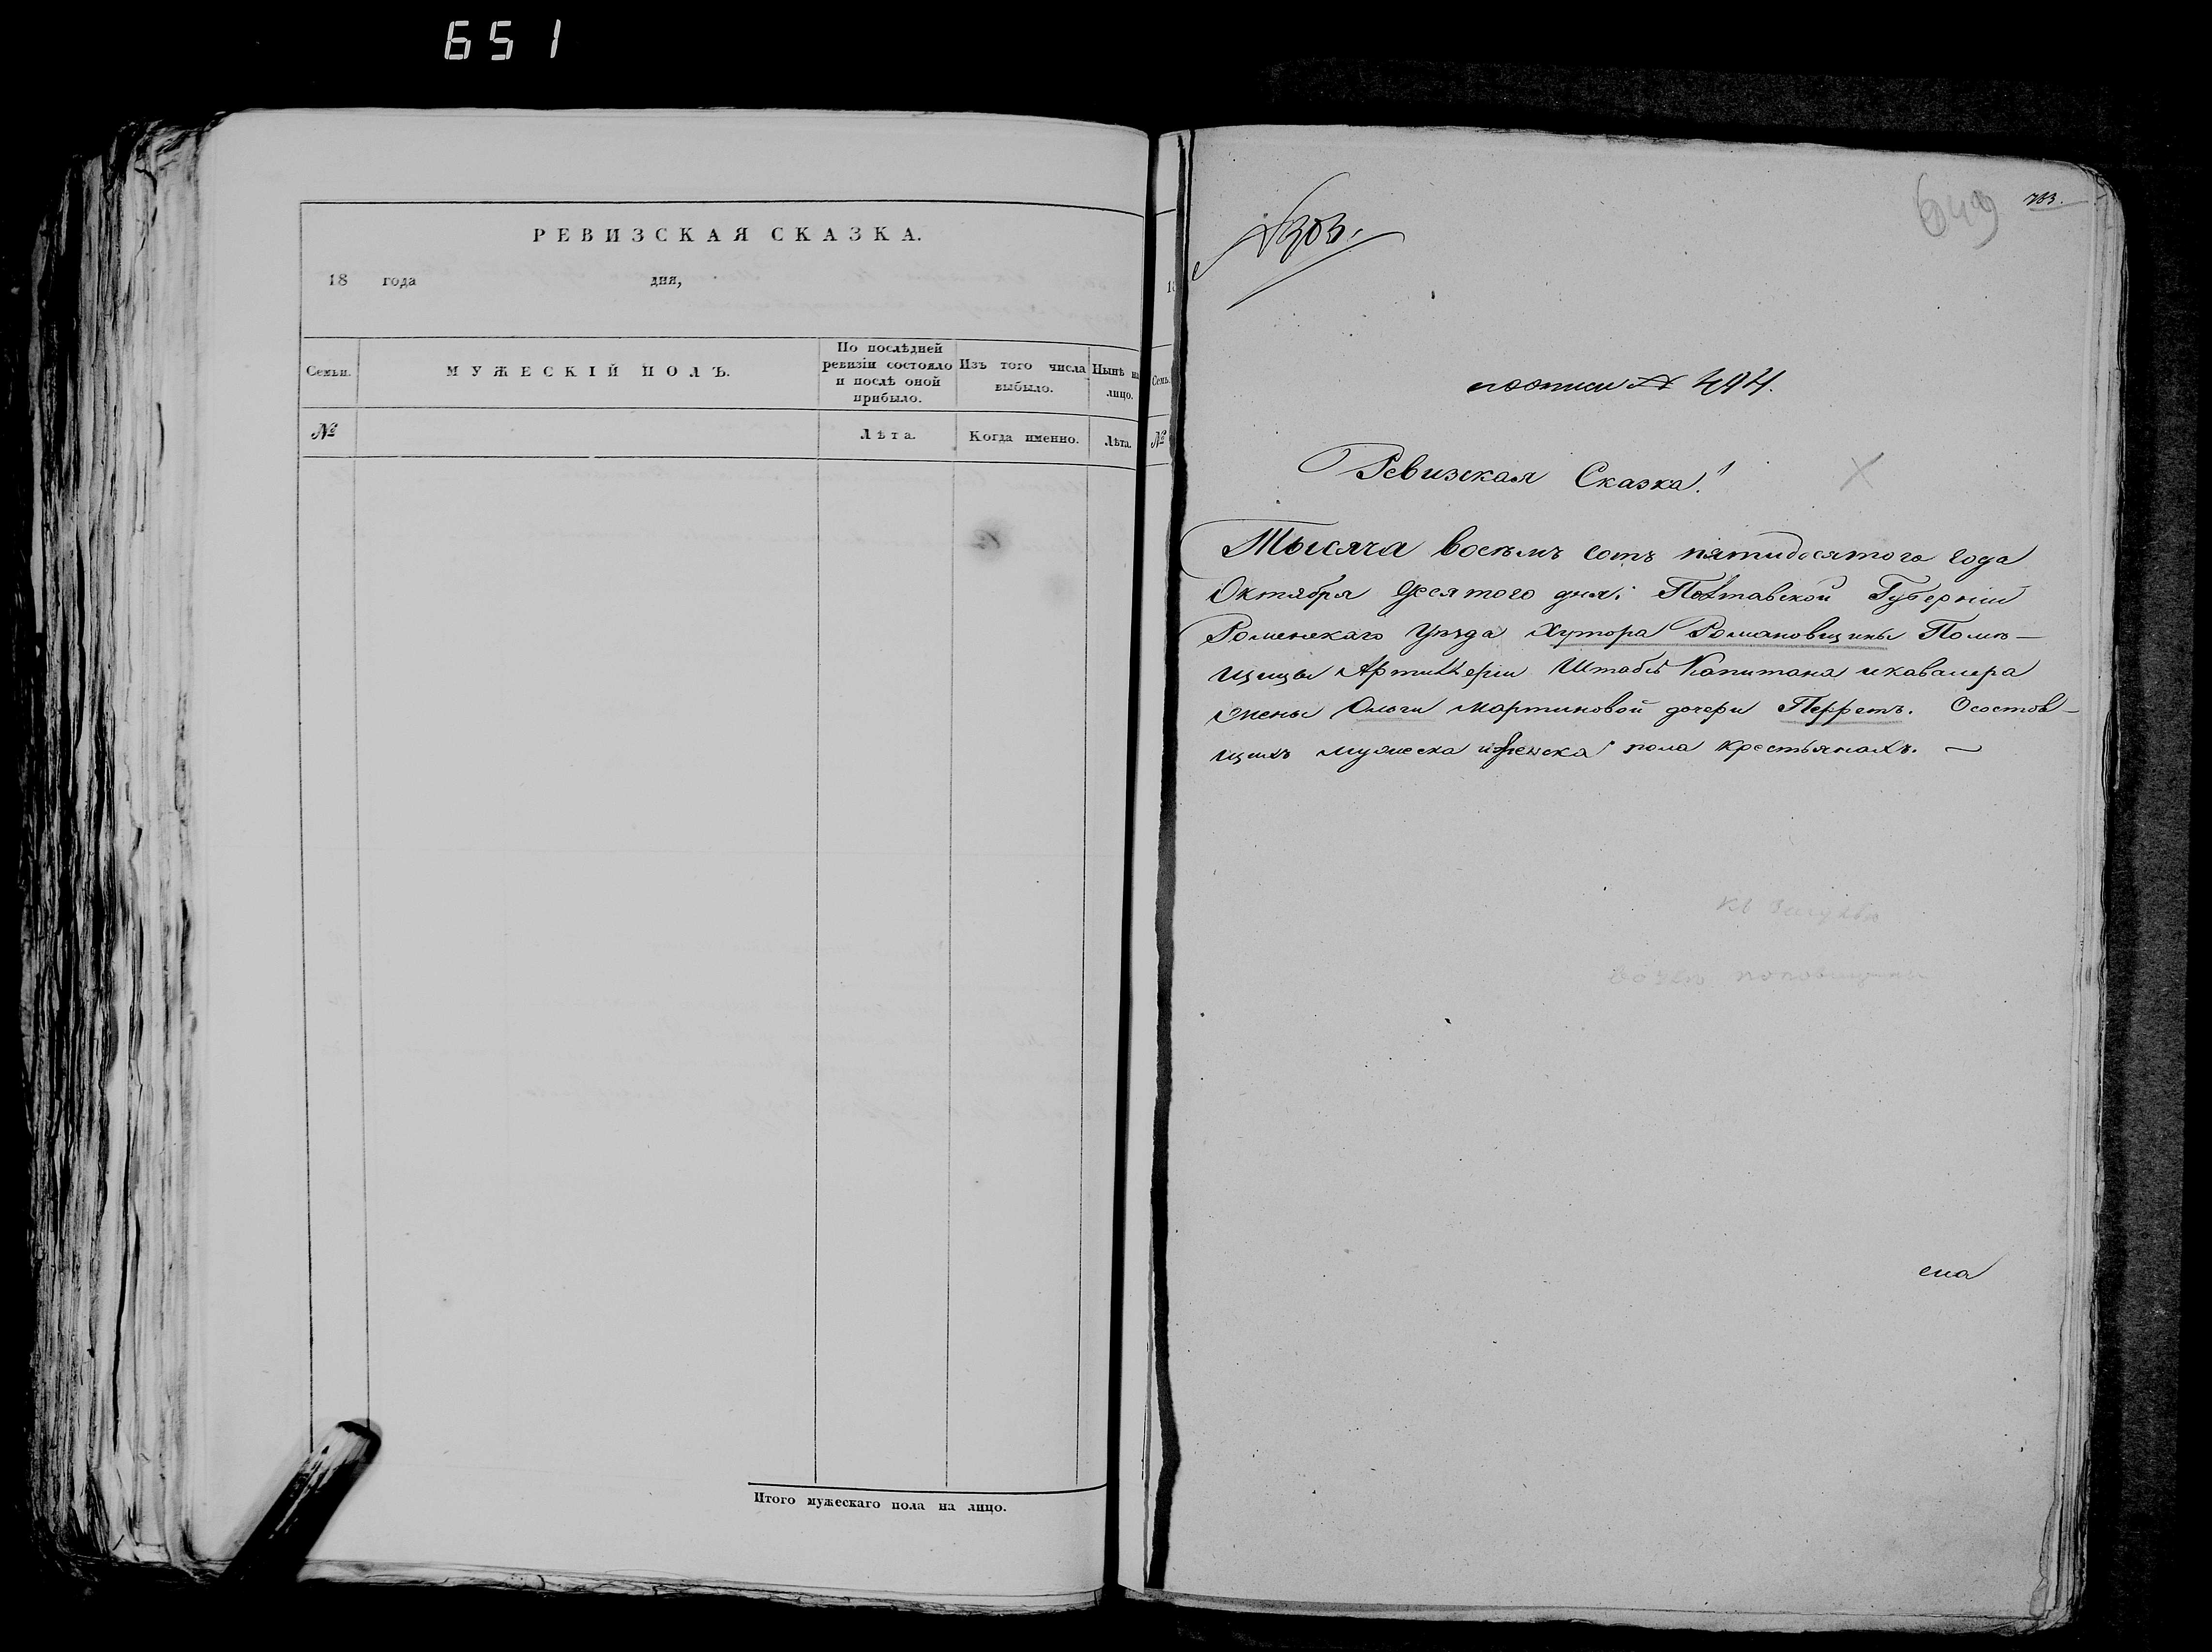 651
РЕВИЗСКАЯ СКАЗКА.
18 года дня,
Семьи.
МУЖЕСКІЙ ПОЛЪ.
По послѣдней
ревизіи состояло
и послѣ оной
прибыло.
Изъ того числа
выбыло.
Нынѣ на
лицо.
№
Лѣта.
Когда именно.
Лѣта.
Итого мужескаго пола на лицо.
18
Семь
№
№303.
649
763.
поописи № 494.
Ревизская Сказка!
Тысяча восемъ сотъ пятидесятого года
Октября десятого дня; Полтавской Губерніи
Роменскаго Уѣзда Хутора Романовщины Помѣ-
щицы Артиллеріи Штабсъ Капитана икавалера
жены Ольги Мартиновой дочери Перретъ. Осостов-
щихъ мужеска иженска пола крестьянахъ. —
возлѣ поповщины
ена